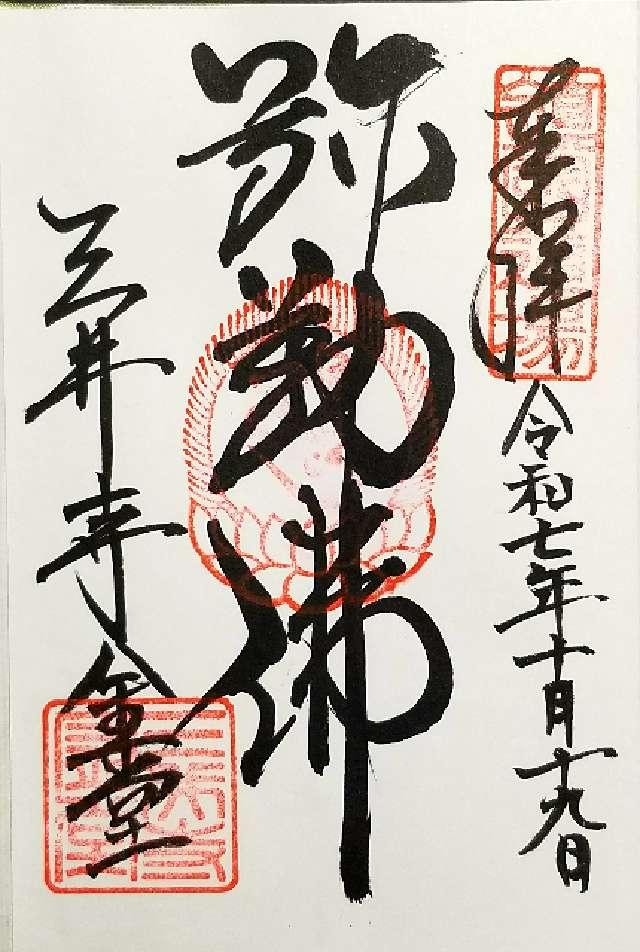 奉拝
令和七年十月十九日
弥勒佛
三井寺
金堂